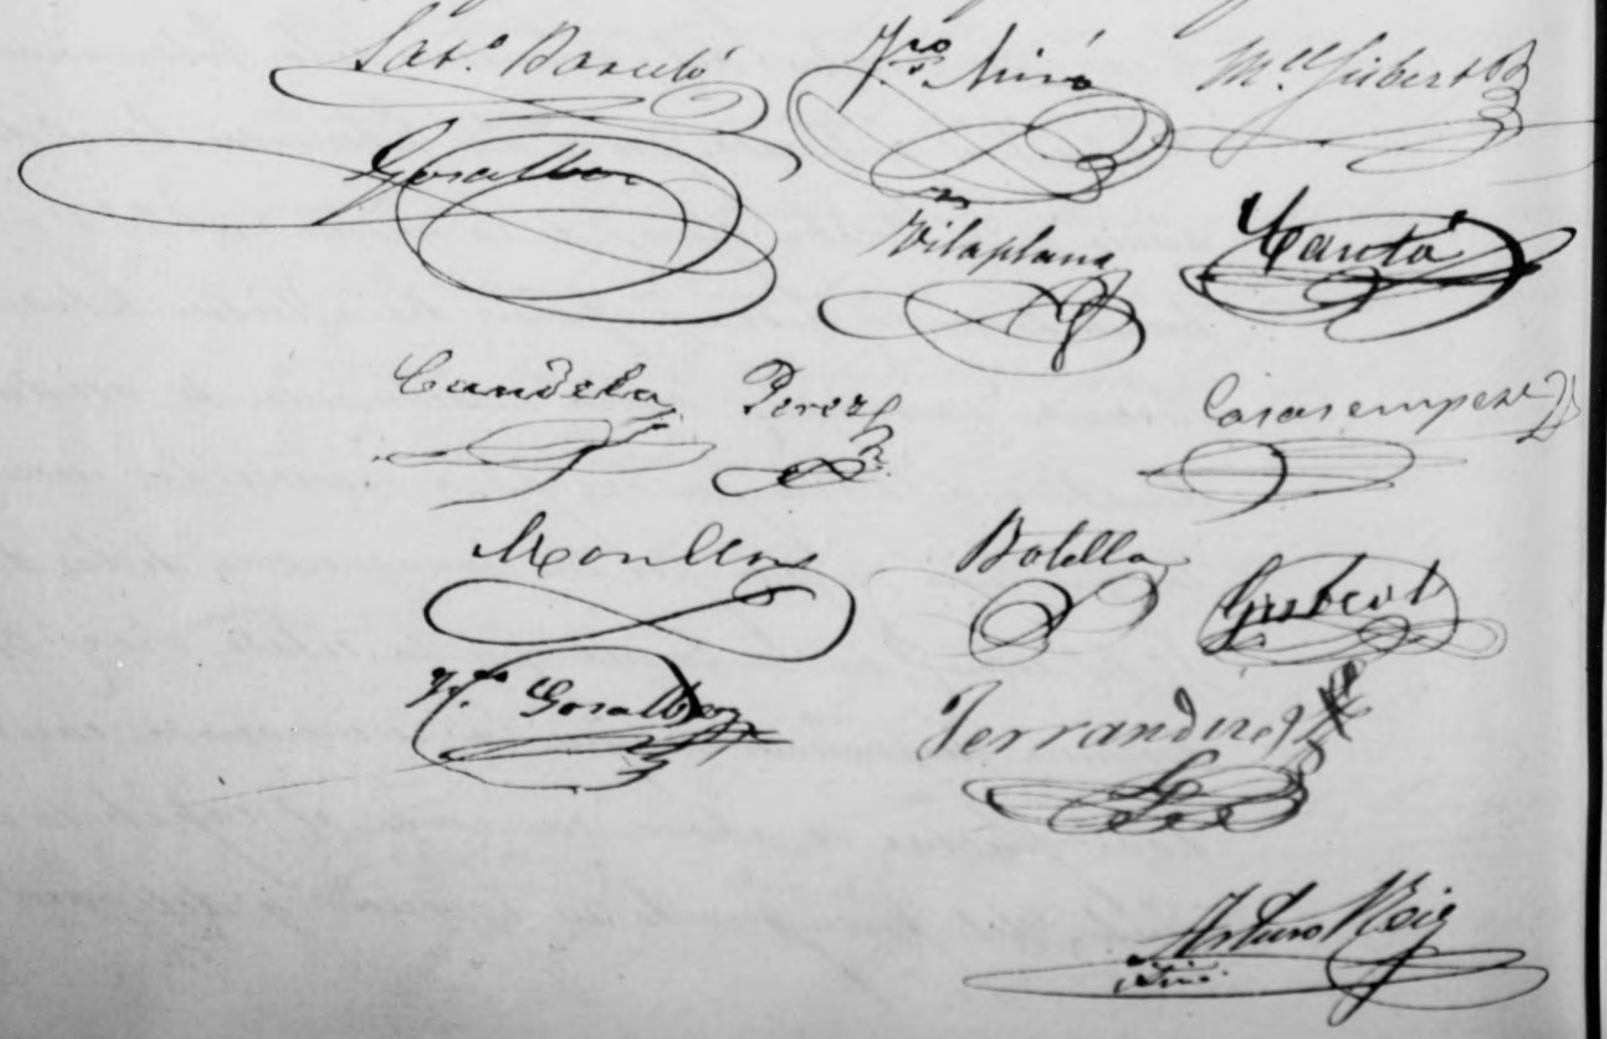 Sat.º Barceló Fco Miró M.el Gisbert
Gosalbez
Vilaplana Cantó
Candela Perez Casasempere
Moullor Botella Gisbert
Fco. Gosalbez Ferrandiz
Arturo Reig